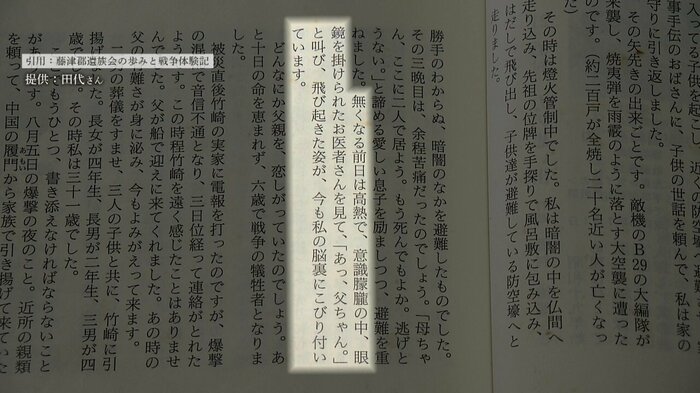 引用：藤津郡遺族会の歩みと戦争体験記
提供：田代さん
子供を起こし、近くの
事手伝のおばさんに、子供の世話を頼んで、私は家の
守りに引き返しました。
その矢先きの出来ごとです。敵機のB29の大編隊が
来襲し、焼夷弾を雨霰のように落とす大空襲に遭った
のです。（約二百戸が全焼し二十名近い人が亡くなっ
その時は燈火管制中でした。私は暗闇の中を仏間へ
走り込み、先祖の位牌を手探りで風呂敷に包み込み、
はだしで飛び出し、子供達が避難している防空壕へと
走りました。
勝手のわからぬ、暗闇のなかを避難したものでした。
その三晩目は、余程苦痛だったのでしょう。「母ちゃ
ん、ここに二人で居よう。もう死んでもよか。逃げと
うない。」と諦める愛しい息子を励ましつつ、避難を重
ねました。無くなる前日は高熱で、意識朦朧の中、眼
鏡を掛けられたお医者さんを見て、「あっ、父ちゃん。」
と叫び、飛び起きた姿が、今も私の脳裏にこびり付い
ています。
どんなにか父親を、恋しがっていたのでしょう。あ
と十日の命を恵まれず、六歳で戦争の犠牲者となりま
した。
被爆直後竹崎の実家に電報を打ったのですが、爆撃
の混乱で音信不通となり、三日位経って連絡がとれた
ようです。この時程竹崎を遠く感じたことはありませ
ん。父が船で迎えに来てくれました。あの時の
父の有難さが身に泌み、今もよみがえって来ます。
の葬儀をすませ、三人の子供と共に、竹崎に引
揚げました。長女が四年生、長男が二年生、三男が四
歳、その時私は三十一歳でした。
もうひとつ、書き添えなければならないことが
あります。八月五日の爆撃の夜のこと。近所の親類
を頼って、中国の厦門から家族で引き揚げて来ていた